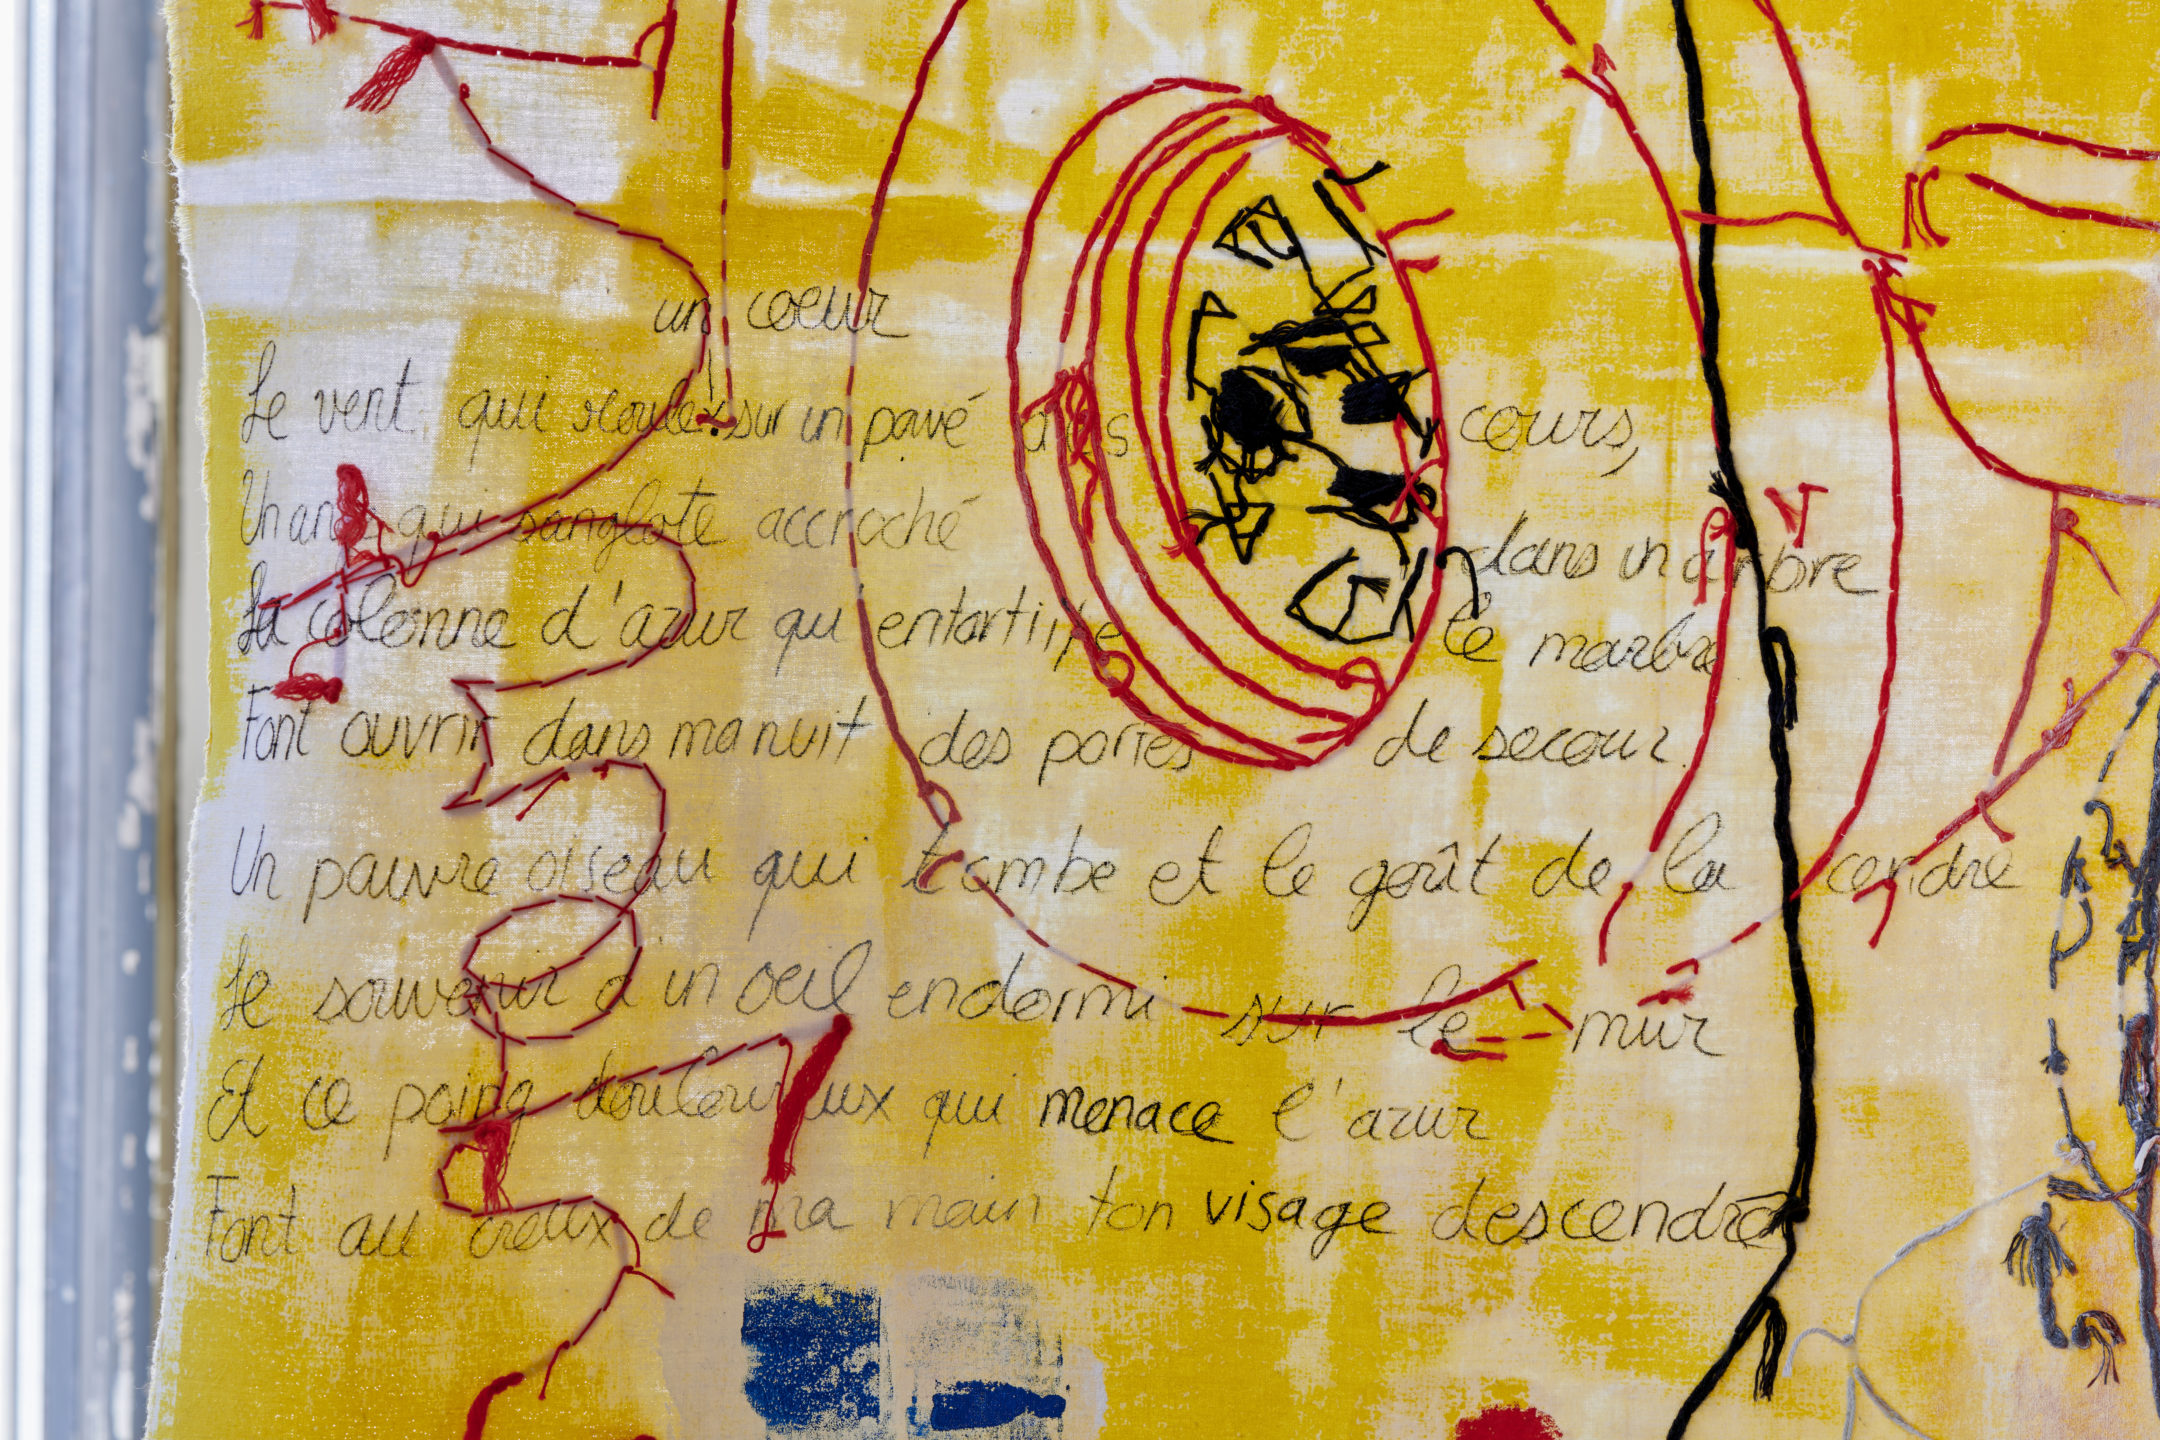 un coeur
Le vent qui roule sur un pavé des cours,
Un ange qui sanglote accroché
dans un arbre
La colonne d'azur qu'entortille le marbre
Font ouvrir dans ma nuit des portes de secour.
Un pauvre oiseau qui tombe et le goût de la cendre
Le souvenir d'un oeil endormi sur le mur
Et ce poing douloureux qui menace l'azur
Font au creux de ma main ton visage descendre